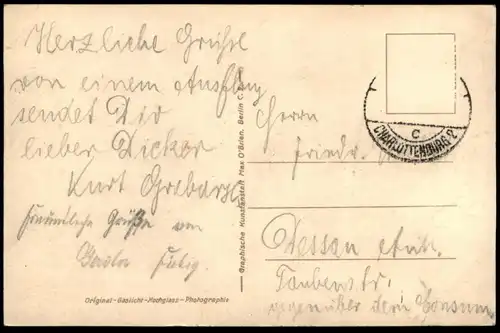 Herzliche Grüße
von einem Ausflug
sendet Dir
lieber Dicker
Kurt
Freundliche Grüße von
Original-Gaslicht-Hochglanz-Photographie
Graphische Kunstanstalt Max O'Brien, Berlin C.
C
CHARLOTTENBURG 2
Herrn
Friedr.
Dessau Anh.
Taubenstr.
gegenüber dem Consum